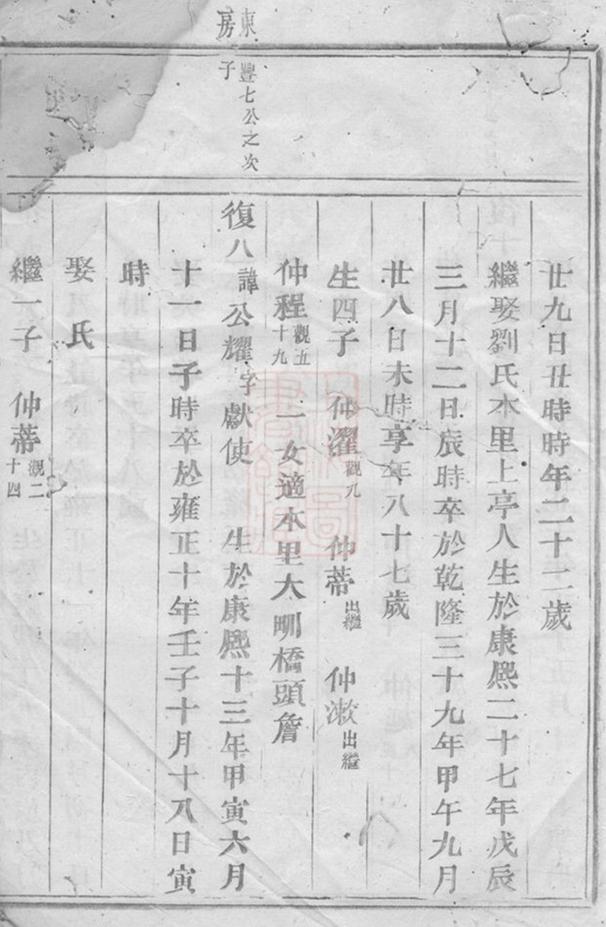 廿九日丑時時年二十二歲
繼娶劉氏本里上亭人生於康熙二十七年戊辰
三月十二日辰時卒於乾隆三十九年甲午九月
廿八日未時享年八十七歲
生四子 仲濯觀九 仲蒂出繼 仲漱出繼
仲程觀五十九 二女適本里大㘭橋頭詹
東房 豐七公之次子
復八諱公耀字獻使 生於康熙十三年甲寅六月
十一日子時卒於雍正十年壬子十月十八日寅
時
娶氏
繼一子 仲蒂觀二十四